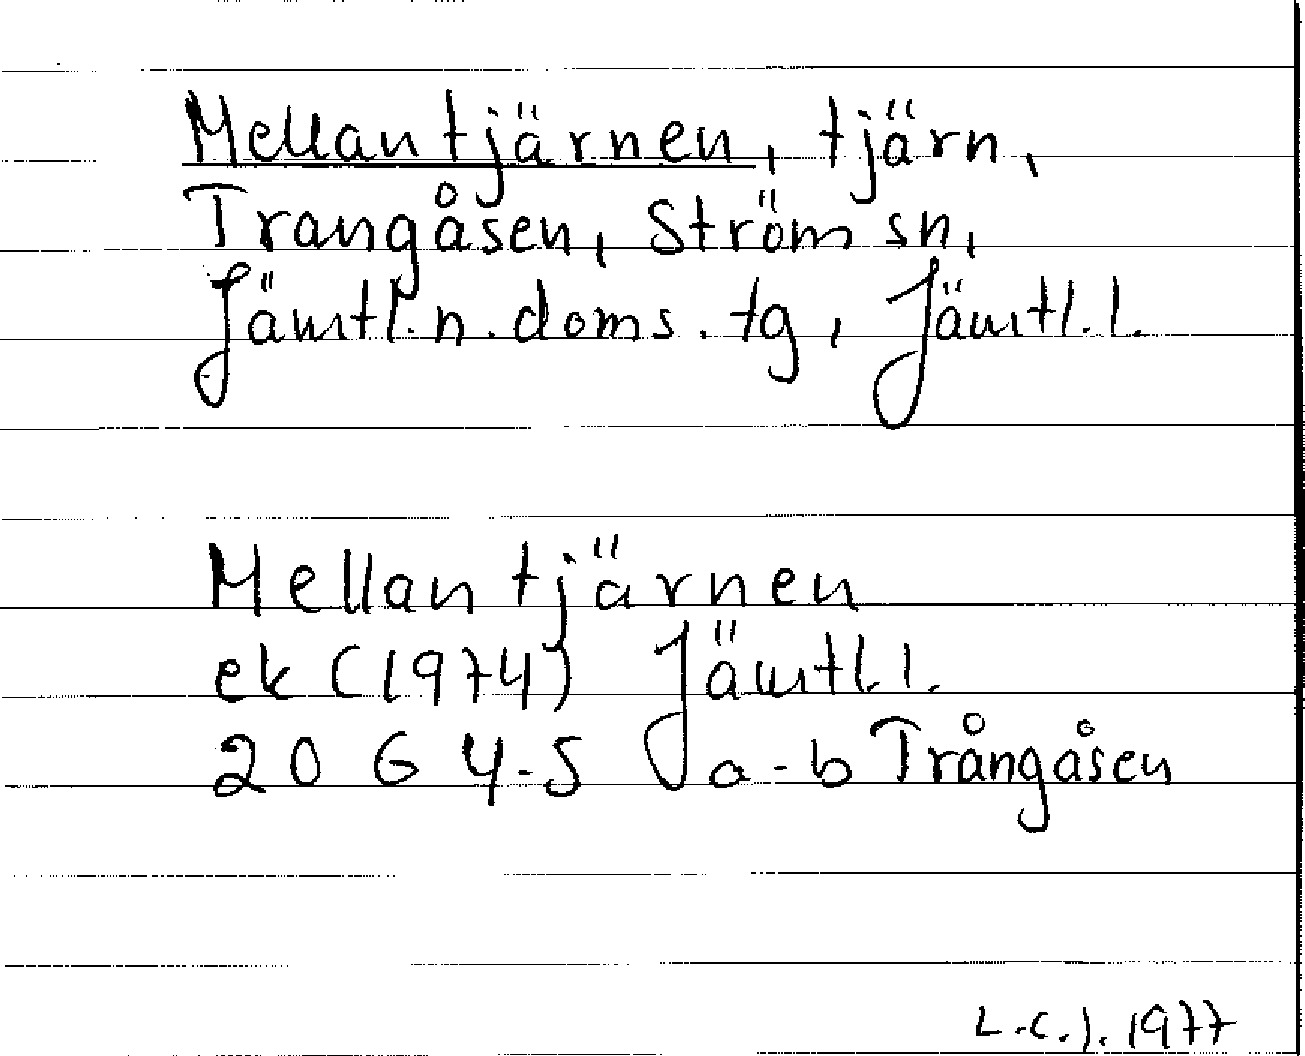 Mellantjärnen, tjärn,
Trangåsen, Ström sn,
Jämtl.n.doms.tg, Jämtl.l.
Mellantjärnen
ek (1974) Jämtl.l.
20 G 4-5 a-b Trångåsen
L.C.J. 1977